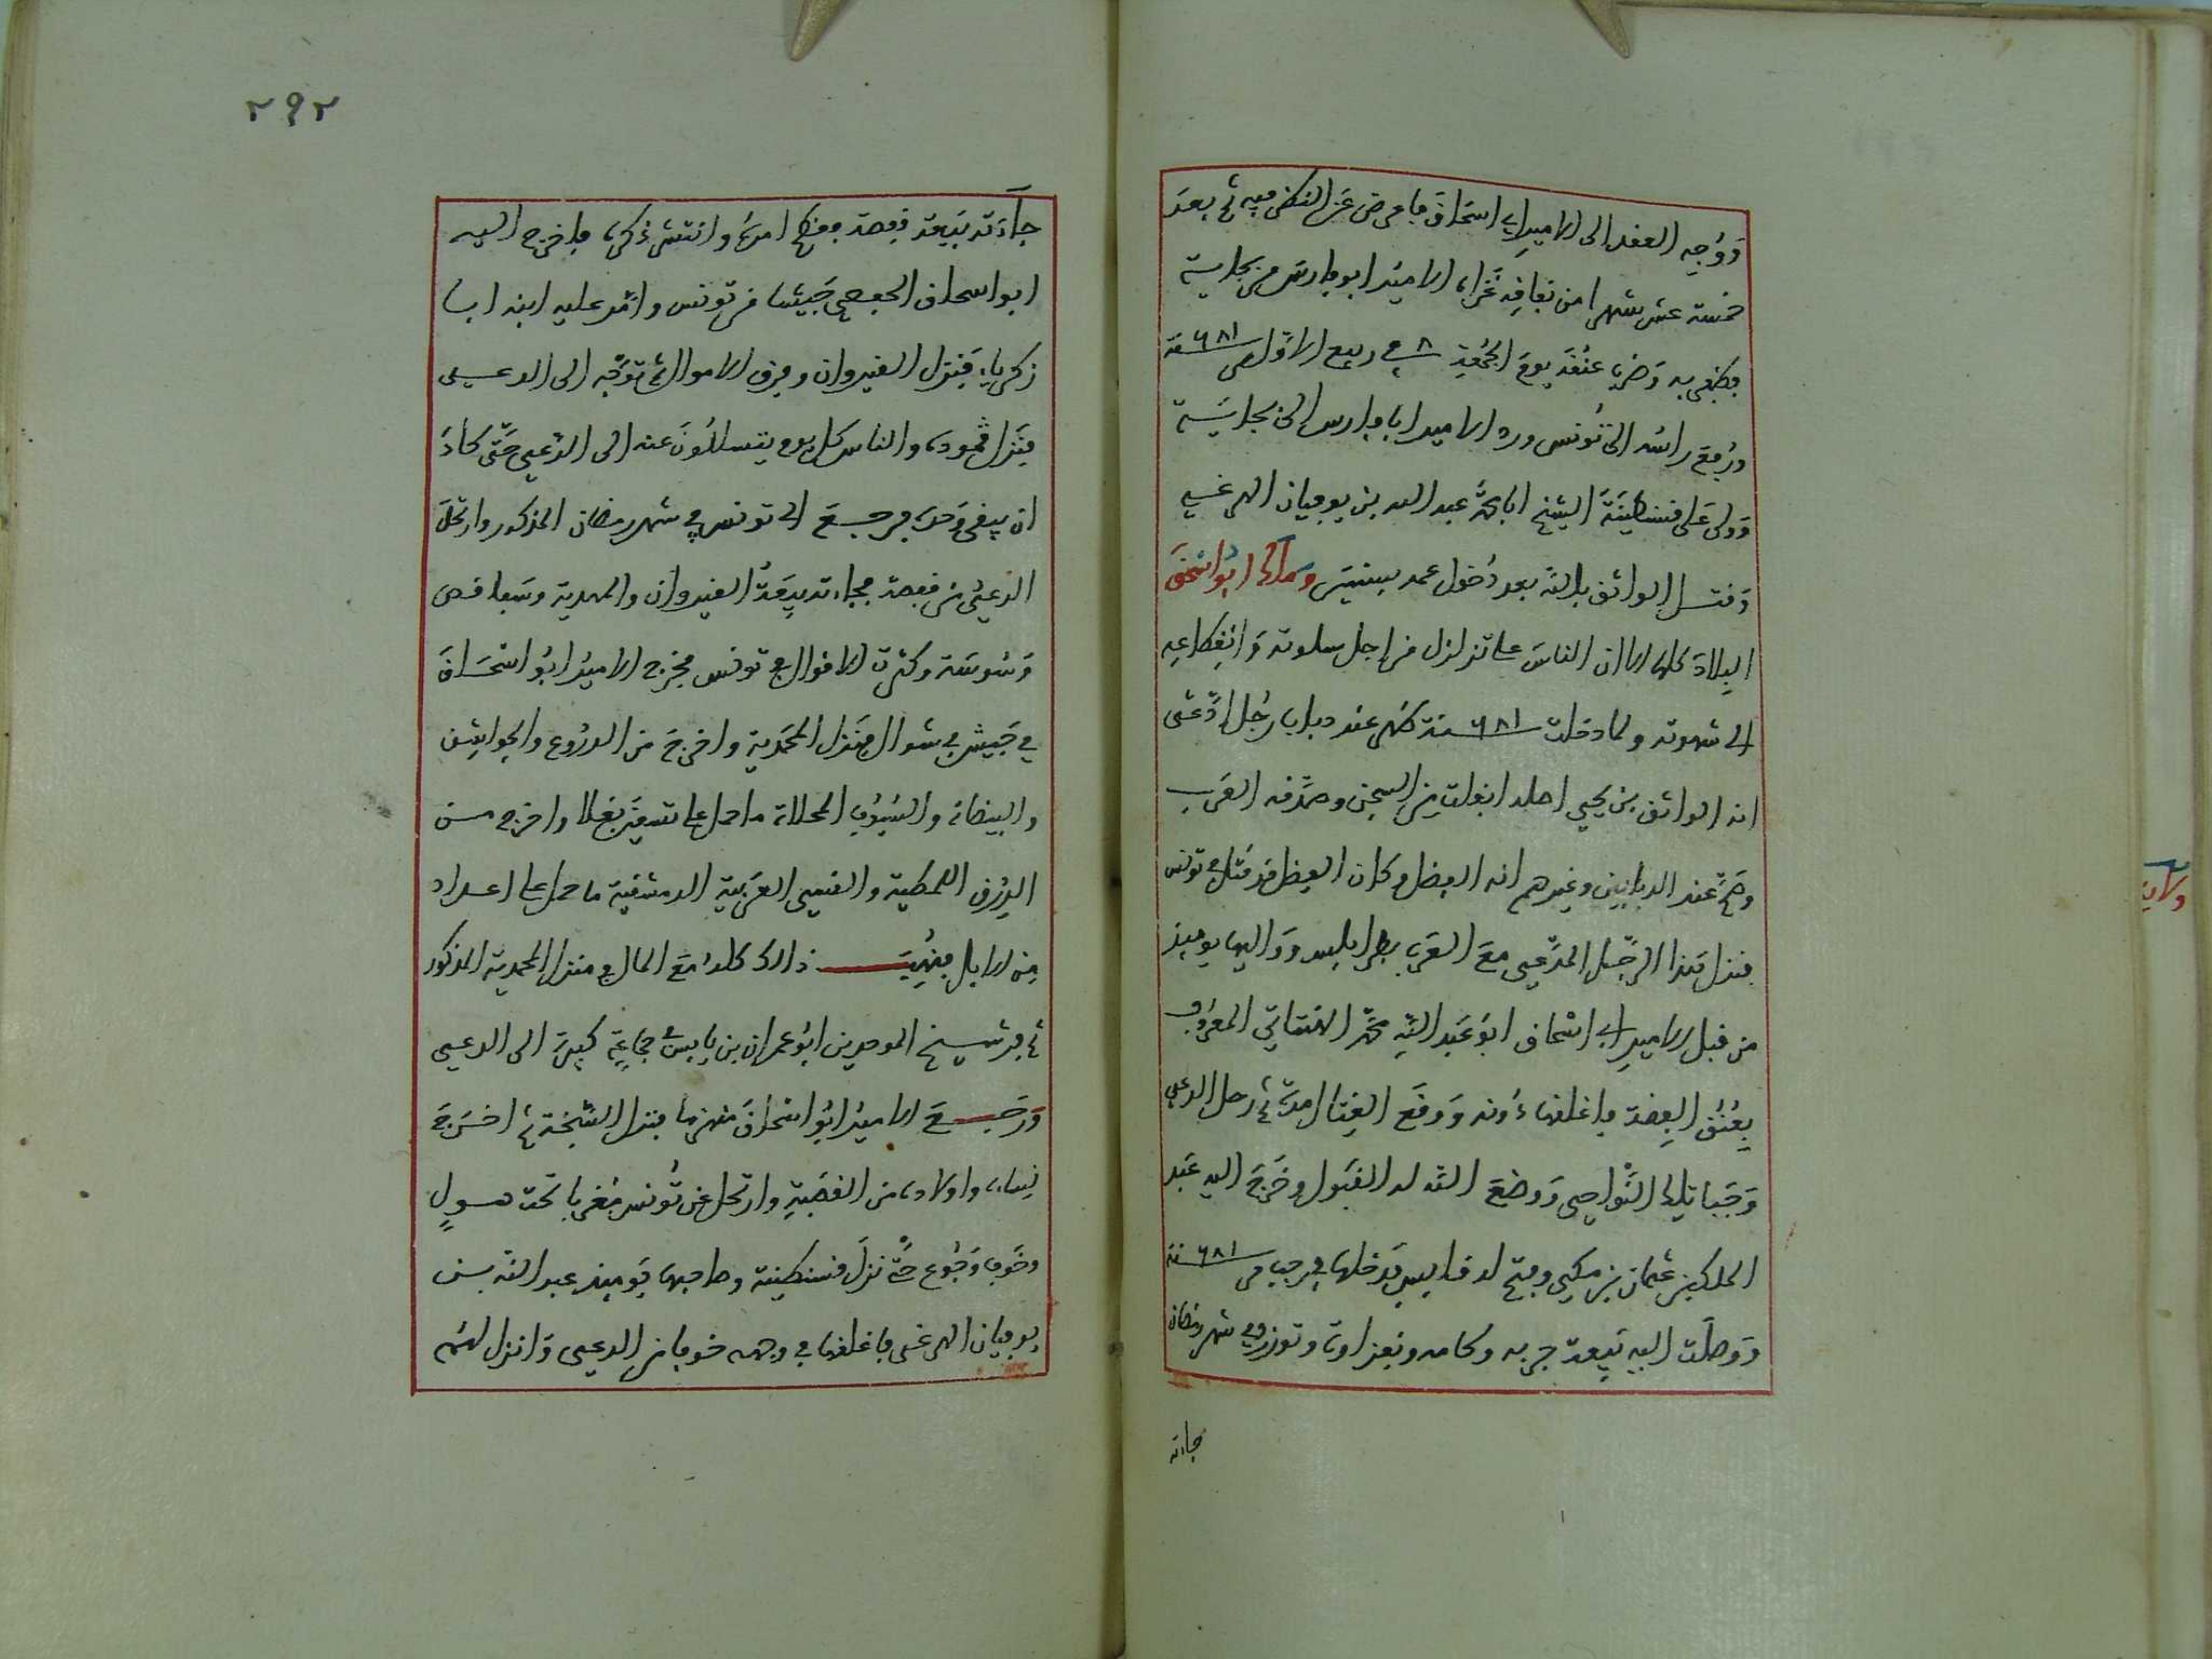 وَوُجِه العقد الى الامير ابي اسحَاق فاعرض عن النظر فيه ثم بعدَ
خمسة عشر شهرا من نفاقه غزاه الامير ابو فارس من بجاية
فظفر به وَضرب عنقه يوم الجمعة ٨ في ربيع الاول من ٦٨١ سنة
ورفع راسه الى تُونس ورد الامير ابا فارس الى بجايَة
وَولى عَلى قسنطينَة الشيخ ابا محمد عبد الله بن يوفيان الهرغي
وَقتل الواثق بالله بعد دُخول عمه بسنتين وملك ابو اسحٰق
البِلادَ كلها الا ان الناسَ على تزلزل من اجل سلوته وَانقطاعه
الى شهوته ولما دخلت ٦٨١ سنة ظهر عند دباب رَجُل ادّعى
انه الواثق بن يحيى اصله انفلت من السجن وصدّقه العَرب
وصَحّ عند الدبابين وغيرهم انه الفضل وكان الفضل قد قتل في تونس
فنزل هَذا الرجُل المدّعي معَ العَرب بطرابلس وَواليها يوميذ
من قبل الامير ابي اسحاق ابو عَبد الله محمّد الهنتاتي المعرُوف
بعُنق الفِضة فاغلقها دُونه وَوقَع القِتال مدة ثم رحل الدعي
وَجَبا تلك النّواحي وَوضعَ الله له القبَول وخَرَجَ اليه عَبد
الملك بن عثمان بن مكي وفتح له قابس فدَخلها في رجب من ٦٨١ سنة
وَوصلت اليه بَيعة جربه وكامه ونفزاوة وتوزر في شهر رمضان
جاءته
٢٩٢
جآءَته بَيعَة قفصة ففخم امرُه وانتشر ذكره فاخرج اليه
ابو اسحاق الحفصي جَيشا من تونس وامّر عليه ابنه ابا
زكرياء فَنزل القيروان وفرق الاموال ثم توَجّه الى الدعي
فنَزل قمودة والناس كل يوم يتسللُونَ عنه الى الدّعي حَتّى كادَ
ان يبقى وَحده فرجعَ الى تونس في شهر رمضان المذكور وارتحلَ
الدعيُ من قفصة فجاءته بيعَةُ القيروان والمهدية وسَفاقص
وَسُوسَة وكثرت الاقوال في تونس فخرج الاميرُ ابُو اسْحَاقَ
في جَيش في شوال فنَزل المحمَّدية واخرجَ من الدرُوع والجواشِن
والبيضات والسّيُوف المحلاة ما حمل على تسعين بَغلا واخرج من
الدِرَق اللمطية والقسي العَرَبية الدمشقية ما حمل على اعداد
من الابل فنُهِبَ ذالك كلهُ مَعَ المال في منزل المحمدية المذكور
ثم فرّ شيخ الموحدين ابُو عمران بن يابس في جماعَة كبيرة الى الدعي
وَرَجعَ الاميرُ ابُو اسْحاقَ منهزما فنزل السّبخة ثم اخرَجَ
نساءه واولاده من القصَبَةِ وارتحل عن تُونس مُغربا تحت هَولٍ
وخَوف وَجُوع حَتّى نزلَ قسنطينة وصَاحبها يَوميذ عبد الله بن
يوفيان الهرغي فاغلقها في وجهه خوفا من الدعي وَانزل لهُم